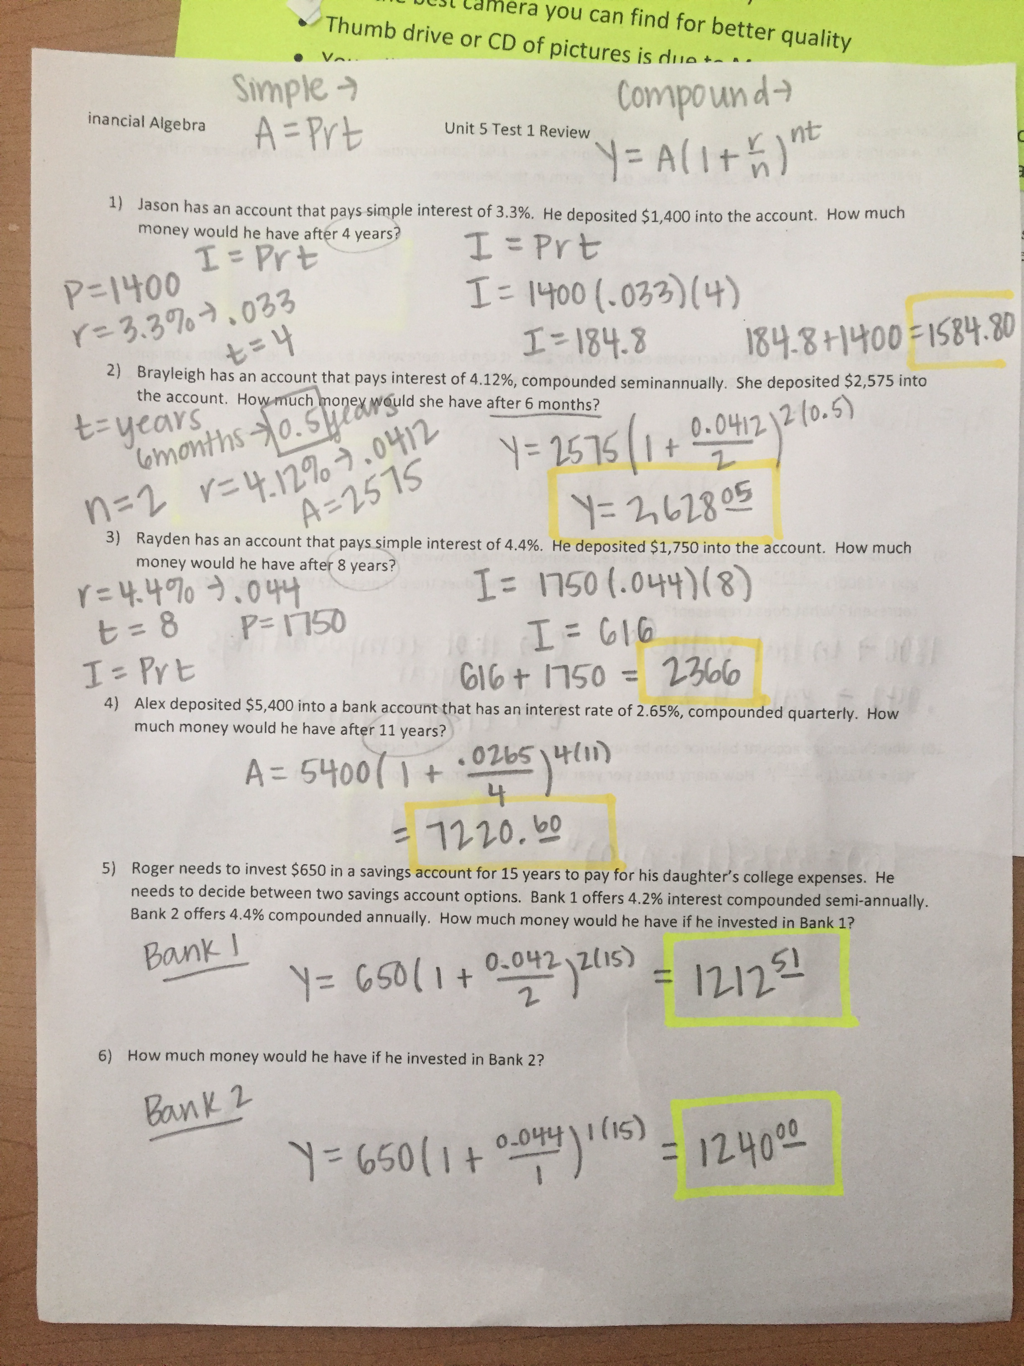 best camera you can find for better quality
• Thumb drive or CD of pictures is due to
Simple →
Compound →
inancial Algebra
A = Prt
Unit 5 Test 1 Review
Y = A(1 + r/n)^nt
1) Jason has an account that pays simple interest of 3.3%. He deposited $1,400 into the account. How much
money would he have after 4 years?
I = Prt
P=1400
r=3.3% → .033
t=4
I = Prt
I = 1400(.033)(4)
I = 184.8
184.8+1400 = 1584.80
2) Brayleigh has an account that pays interest of 4.12%, compounded seminannually. She deposited $2,575 into
the account. How much money would she have after 6 months?
t=years
6months → 0.5 years
n=2
r=4.12% → .0412
A=2575
Y = 2575(1 + 0.0412/2)^2(0.5)
Y = 2,628 05
3) Rayden has an account that pays simple interest of 4.4%. He deposited $1,750 into the account. How much
money would he have after 8 years?
r=4.4% → .044
t = 8 P=1750
I = Prt
I = 1750(.044)(8)
I = 616
616 + 1750 = 2366
4) Alex deposited $5,400 into a bank account that has an interest rate of 2.65%, compounded quarterly. How
much money would he have after 11 years?
A = 5400(1 + .0265/4)^4(11)
= 7220.60
5) Roger needs to invest $650 in a savings account for 15 years to pay for his daughter's college expenses. He
needs to decide between two savings account options. Bank 1 offers 4.2% interest compounded semi-annually.
Bank 2 offers 4.4% compounded annually. How much money would he have if he invested in Bank 1?
Bank 1
Y = 650(1 + 0.042/2)^2(15) = 1212 51
6) How much money would he have if he invested in Bank 2?
Bank 2
Y = 650(1 + 0.044/1)^1(15) = 1240 00